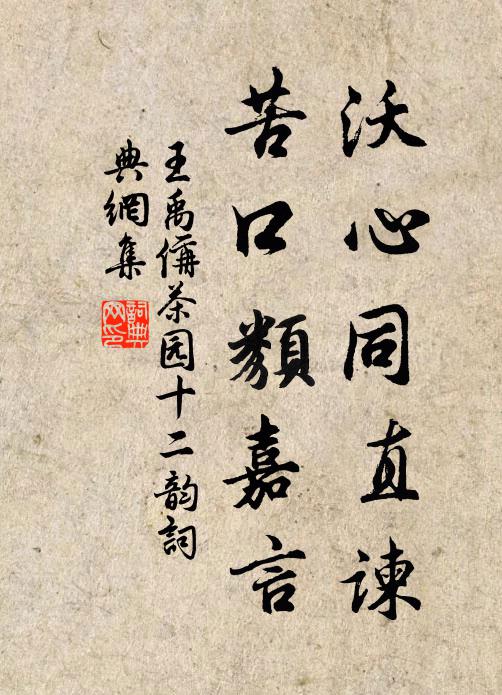 沃心同直諫
苦口類嘉言
王禹偁茶园十二韵詞
典網集
詞典网印